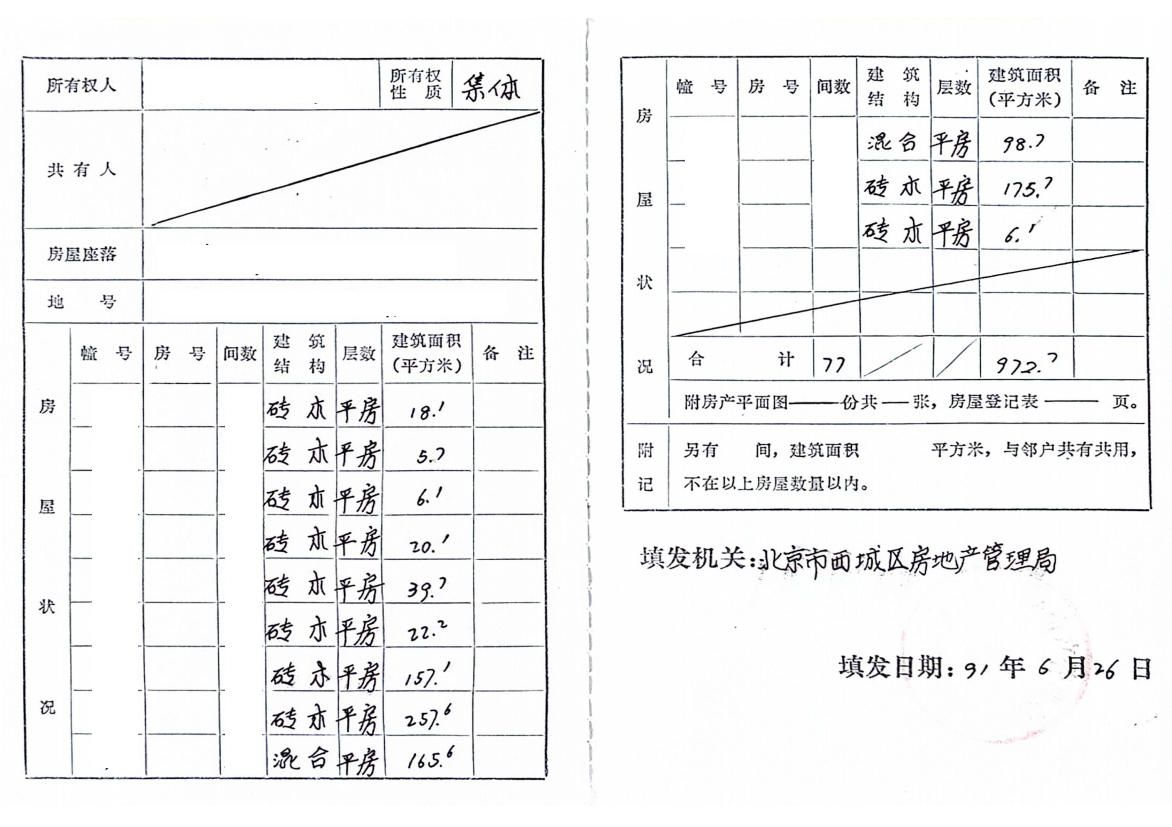 所有权人 所有权性质 集体
共有人
房屋座落
地号
房屋状况 幢号 房号 间数 建筑结构 层数 建筑面积(平方米) 备注
砖木 平房 18.1
砖木 平房 5.7
砖木 平房 6.1
砖木 平房 20.1
砖木 平房 39.7
砖木 平房 22.2
砖木 平房 157.1
砖木 平房 257.6
混合 平房 165.6
房屋状况 幢号 房号 间数 建筑结构 层数 建筑面积(平方米) 备注
混合 平房 98.7
砖木 平房 175.7
砖木 平房 6.1
合计 77 972.7
附房产平面图——份共—张，房屋登记表——页。
附记 另有 间，建筑面积 平方米，与邻户共有共用，
不在以上房屋数量以内。
填发机关：北京市西城区房地产管理局
填发日期：91年6月26日